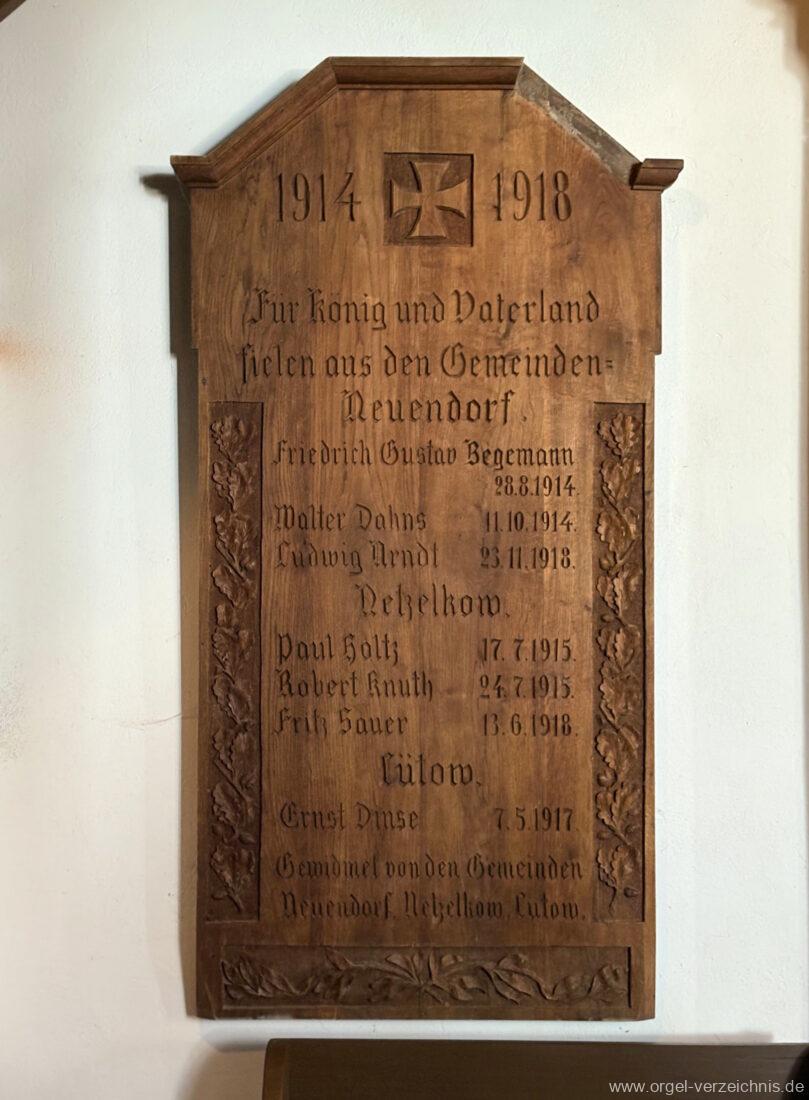 1914 1918
Für König und Vaterland
fielen aus den Gemeinden=
Neuendorf.
Friedrich Gustav Begemann
28.8.1914.
Walter Dahns 11.10.1914.
Ludwig Arndt 23.11.1918.
Netzelkow.
Paul Holtz 17.7.1915.
Robert Knuth 24.7.1915.
Fritz Sauer 13.6.1918.
Lütow.
Ernst Dinse 7.5.1917.
Gewidmet von den Gemeinden
Neuendorf, Netzelkow, Lütow.
www.orgel-verzeichnis.de